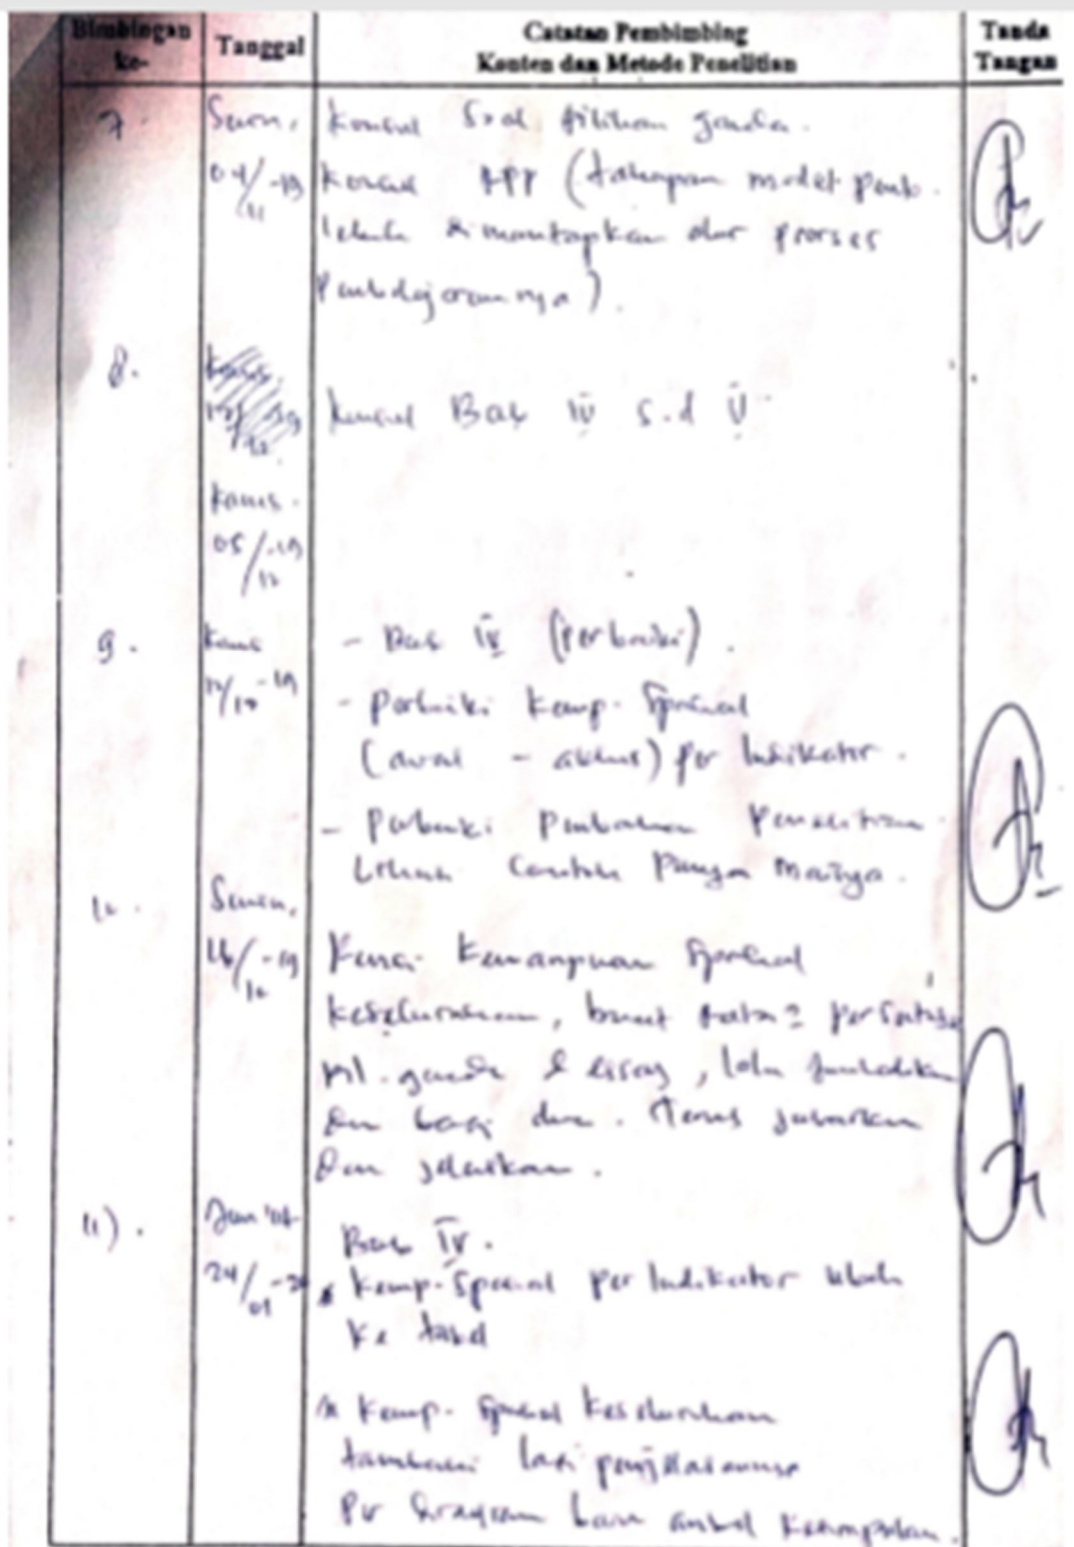 Bimbingan ke-
Tanggal
Catatan Pembimbing
Konten dan Metode Penelitian
Tanda Tangan
7.
Senin,
04/11-19
Konsul Soal pilihan ganda.
Konsul RPP (tahapan model pemb.
lebih dimantapkan dlm proses
Pembelajarannya).
8.
Konsul Bab IV s.d V
Kamis.
05/12-19
9.
Kamis
12/12-19
- Bab IV (perbaiki).
- Perbaiki Kemp. Spasial
(awal - akhir) per Indikator.
- Perbaiki Pembahasan Penelitian
Lihat Contoh
10.
Senin,
16/12-19
Kemampuan Spasial
keseluruhan, buat rata2
pil. ganda & essay, lalu jumlahkan
dan bagi dua. Terus jabarkan
dan jelaskan.
11).
Jum'at
24/01-20
Bab IV.
* Kemp. Spasial per Indikator ubah
ke tabel
* Kemp. Spasial keseluruhan
tambahi lagi penjelasannya
diagram baru ambil kesimpulan.